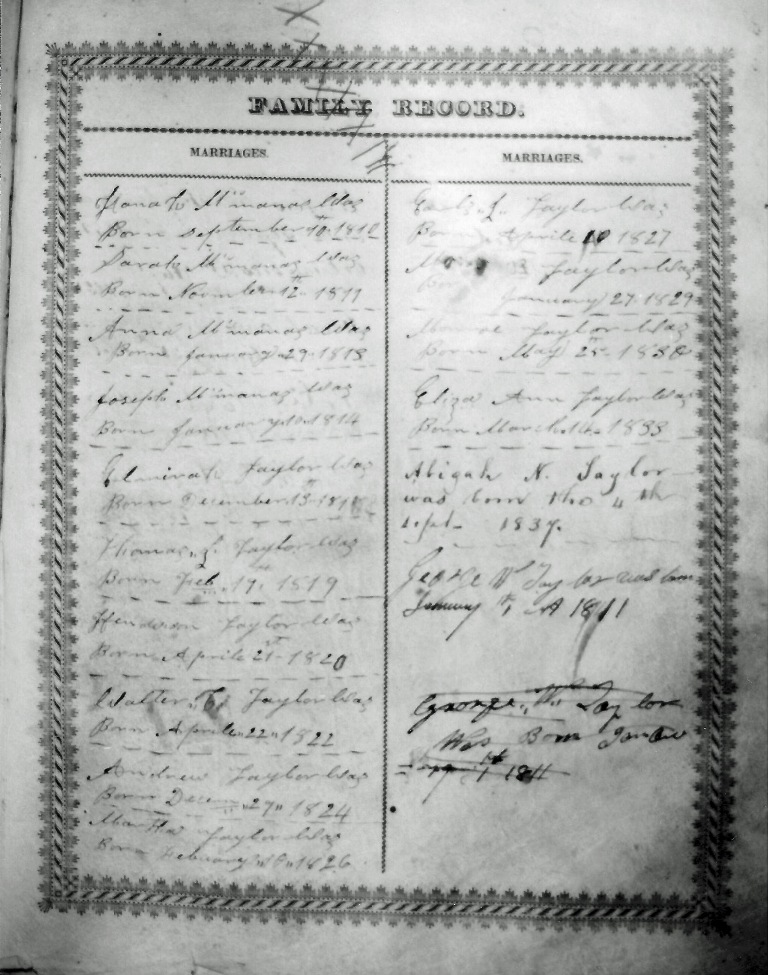 FAMILY RECORD.
MARRIAGES.
Hanah Mcmanas Was
Born September 10th 1810
Sarah Mcmanas Was
Born November 12th 1811
Anna Mcmanas Was
Born January 29 1813
Joseph Mcmanas Was
Born January 10 1814
Elmirah Taylor Was
Born December 13
Thomas Taylor Was
Born Feb. 19. 1819
Henderson Taylor Was
Born Aprile 21st 1820
Walter T. Taylor Was
Born Aprile 22 1822
Andrew Taylor Was
Born Decem 27 1824
Martha Taylor Was
Born Febuary 1826
MARRIAGES.
Taylor Was
Born Aprile 10 1827
Taylor Was
January 27 1829
Monroe Taylor Was
Born May 25 1830
Eliza Ann Taylor Was
Born March 1833
Abigah N. Taylor
was born the 4 th
sept 1837.
George W Taylor was born
January 1811
George W Taylor
Was Born Januw
1st 1811